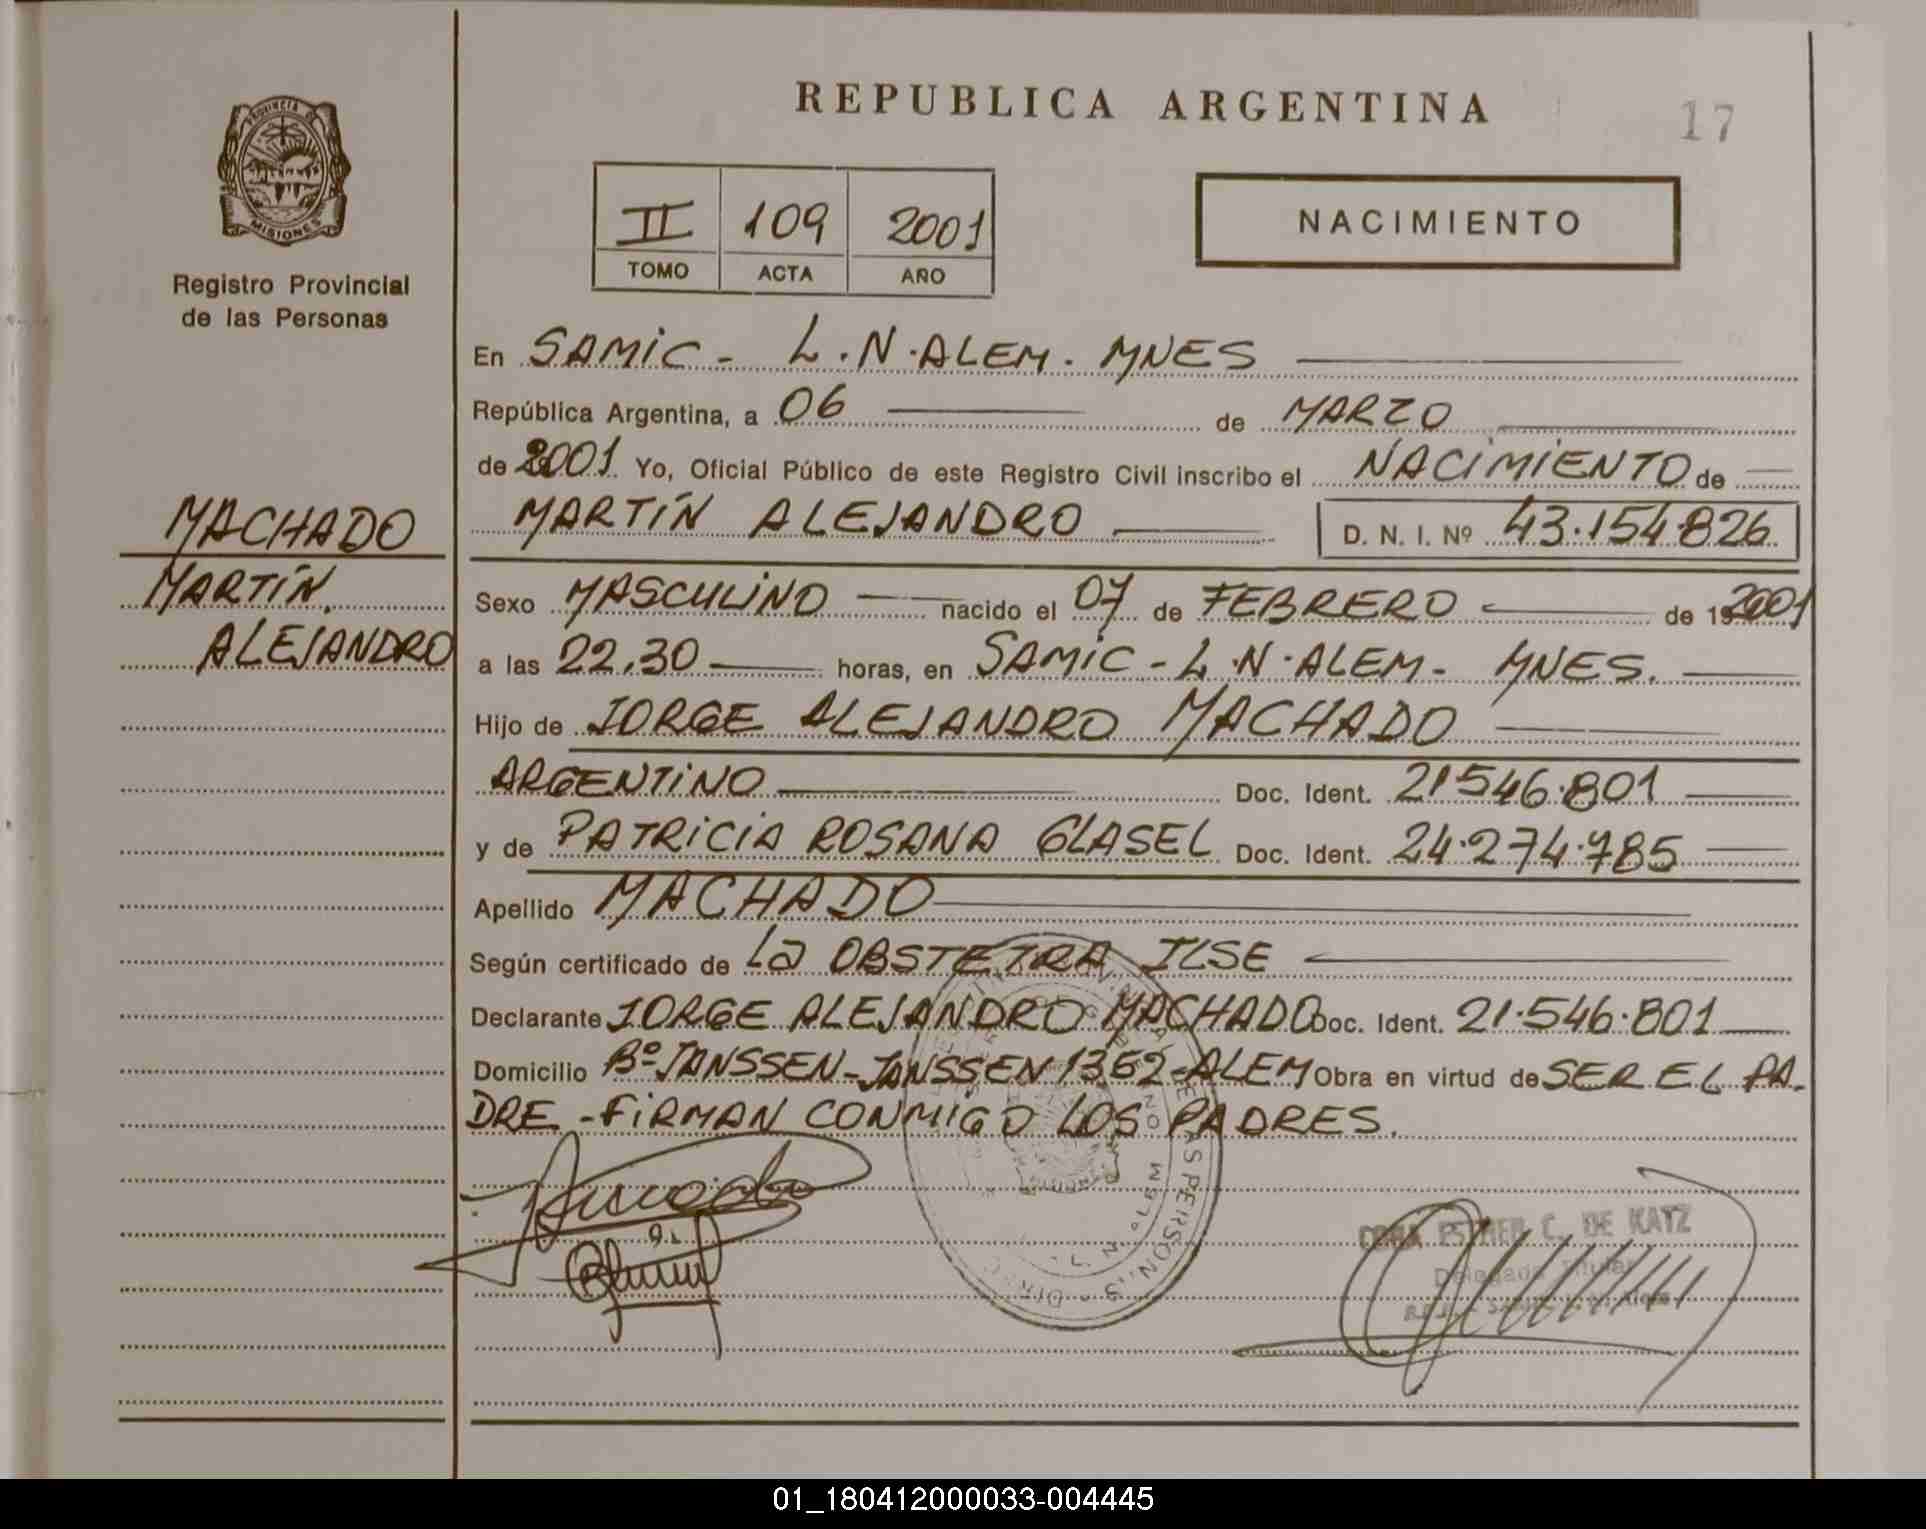 REPUBLICA ARGENTINA
17
PROVINCIA DE
MISIONES
Registro Provincial
de las Personas
II 109 2001
TOMO ACTA AÑO
NACIMIENTO
En SAMIC - L.N.ALEM. MNES
República Argentina, a 06 de MARZO
de 2001 Yo, Oficial Público de este Registro Civil inscribo el NACIMIENTO de
MARTÍN ALEJANDRO D. N. I. Nº 43.154.826
MACHADO
MARTÍN
ALEJANDRO
Sexo MASCULINO nacido el 07 de FEBRERO de 192001
a las 22.30 horas, en SAMIC - L.N.ALEM - MNES.
Hijo de JORGE ALEJANDRO MACHADO
ARGENTINO Doc. Ident. 21546.801
y de PATRICIA ROSANA GLASEL Doc. Ident. 24.274.785
Apellido MACHADO
Según certificado de La OBSTETRA ILSE
Declarante JORGE ALEJANDRO MACHADO Doc. Ident. 21.546.801
Domicilio Bº JANSSEN - JANSSEN 1362 - ALEM Obra en virtud de SER EL PA-
DRE - FIRMAN CONMIGO LOS PADRES.
ESTHER C. DE KATZ
Delegada Titular
01_180412000033-004445